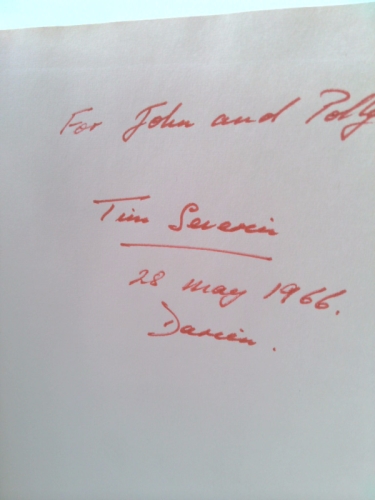 For John and Polly
Tim Severin
28 may 1966.
Darien.